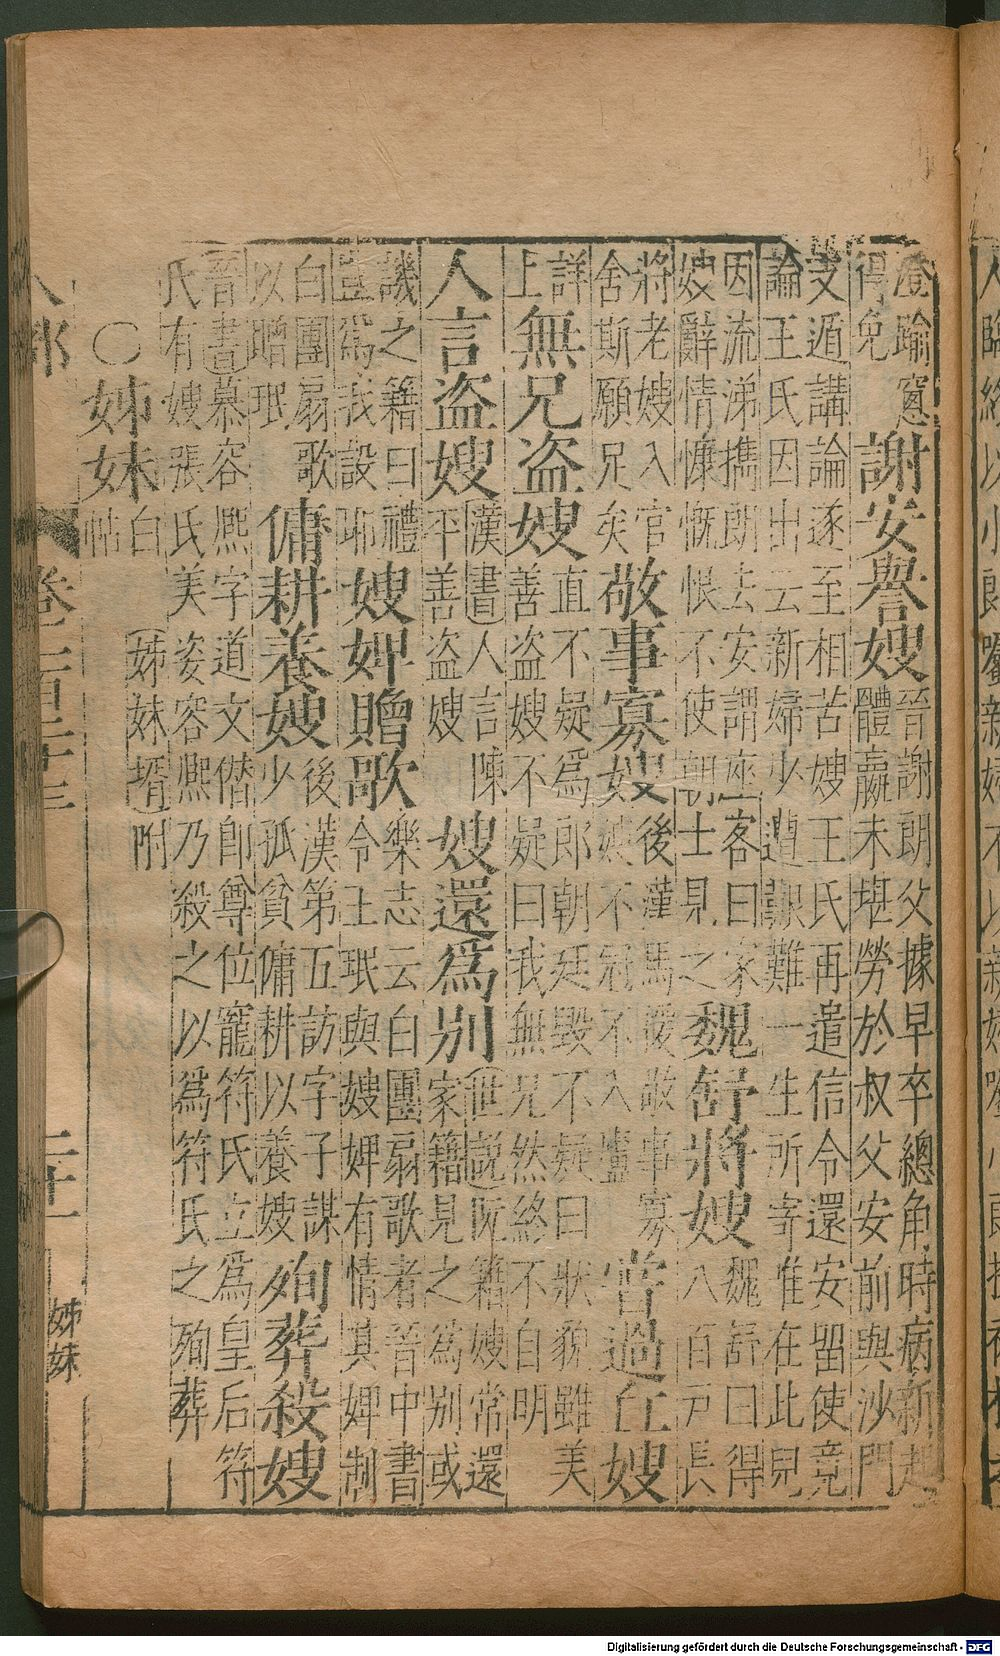 人臨終以小郎囑新婦不以新婦囑小郎
澄踰窻
得免
謝安譽嫂
晉謝朗父據早卒總角時病新起
體羸未堪勞於叔父安前與沙門
支遁講論逐至相苦嫂王氏再遣信令還安留使竟
論王氏因出云新婦少遭艱難一生所寄惟在此兒
因流涕攜朗去安謂座客曰家
嫂辭情慷慨恨不使朝士見之
魏舒將嫂
魏舒曰得
八百戸長
將老嫂入官
舍斯願足矣
敬事寡嫂
後漢馬援敬事寡
嫂不冠不入廬
嘗過丘嫂
詳
上
無兄盗嫂
直不疑爲郎朝廷毀不疑曰狀貌雖美
善盗嫂不疑曰我無兄然終不自明
人言盗嫂
漢書人言陳
平善盗嫂
嫂還爲別
世説阮籍嫂常還
家籍見之爲別或
譏之籍曰禮
豈爲我設耶
嫂婢贈歌
樂志云白團扇歌者晉中書
令王珉與嫂婢有情其婢制
白團扇歌
以贈珉
傭耕養嫂
後漢第五訪字子謀
少孤貧傭耕以養嫂
殉葬殺嫂
晉書慕容熈字道文僭卽尊位寵符氏立爲皇后符
氏有嫂張氏美姿容熈乃殺之以爲符氏之殉葬
○姊妹
白
帖
姊妹壻附
人部
卷二百
十三
二十一
姊妹
Digitalisierung gefördert durch die Deutsche Forschungsgemeinschaft - DFG